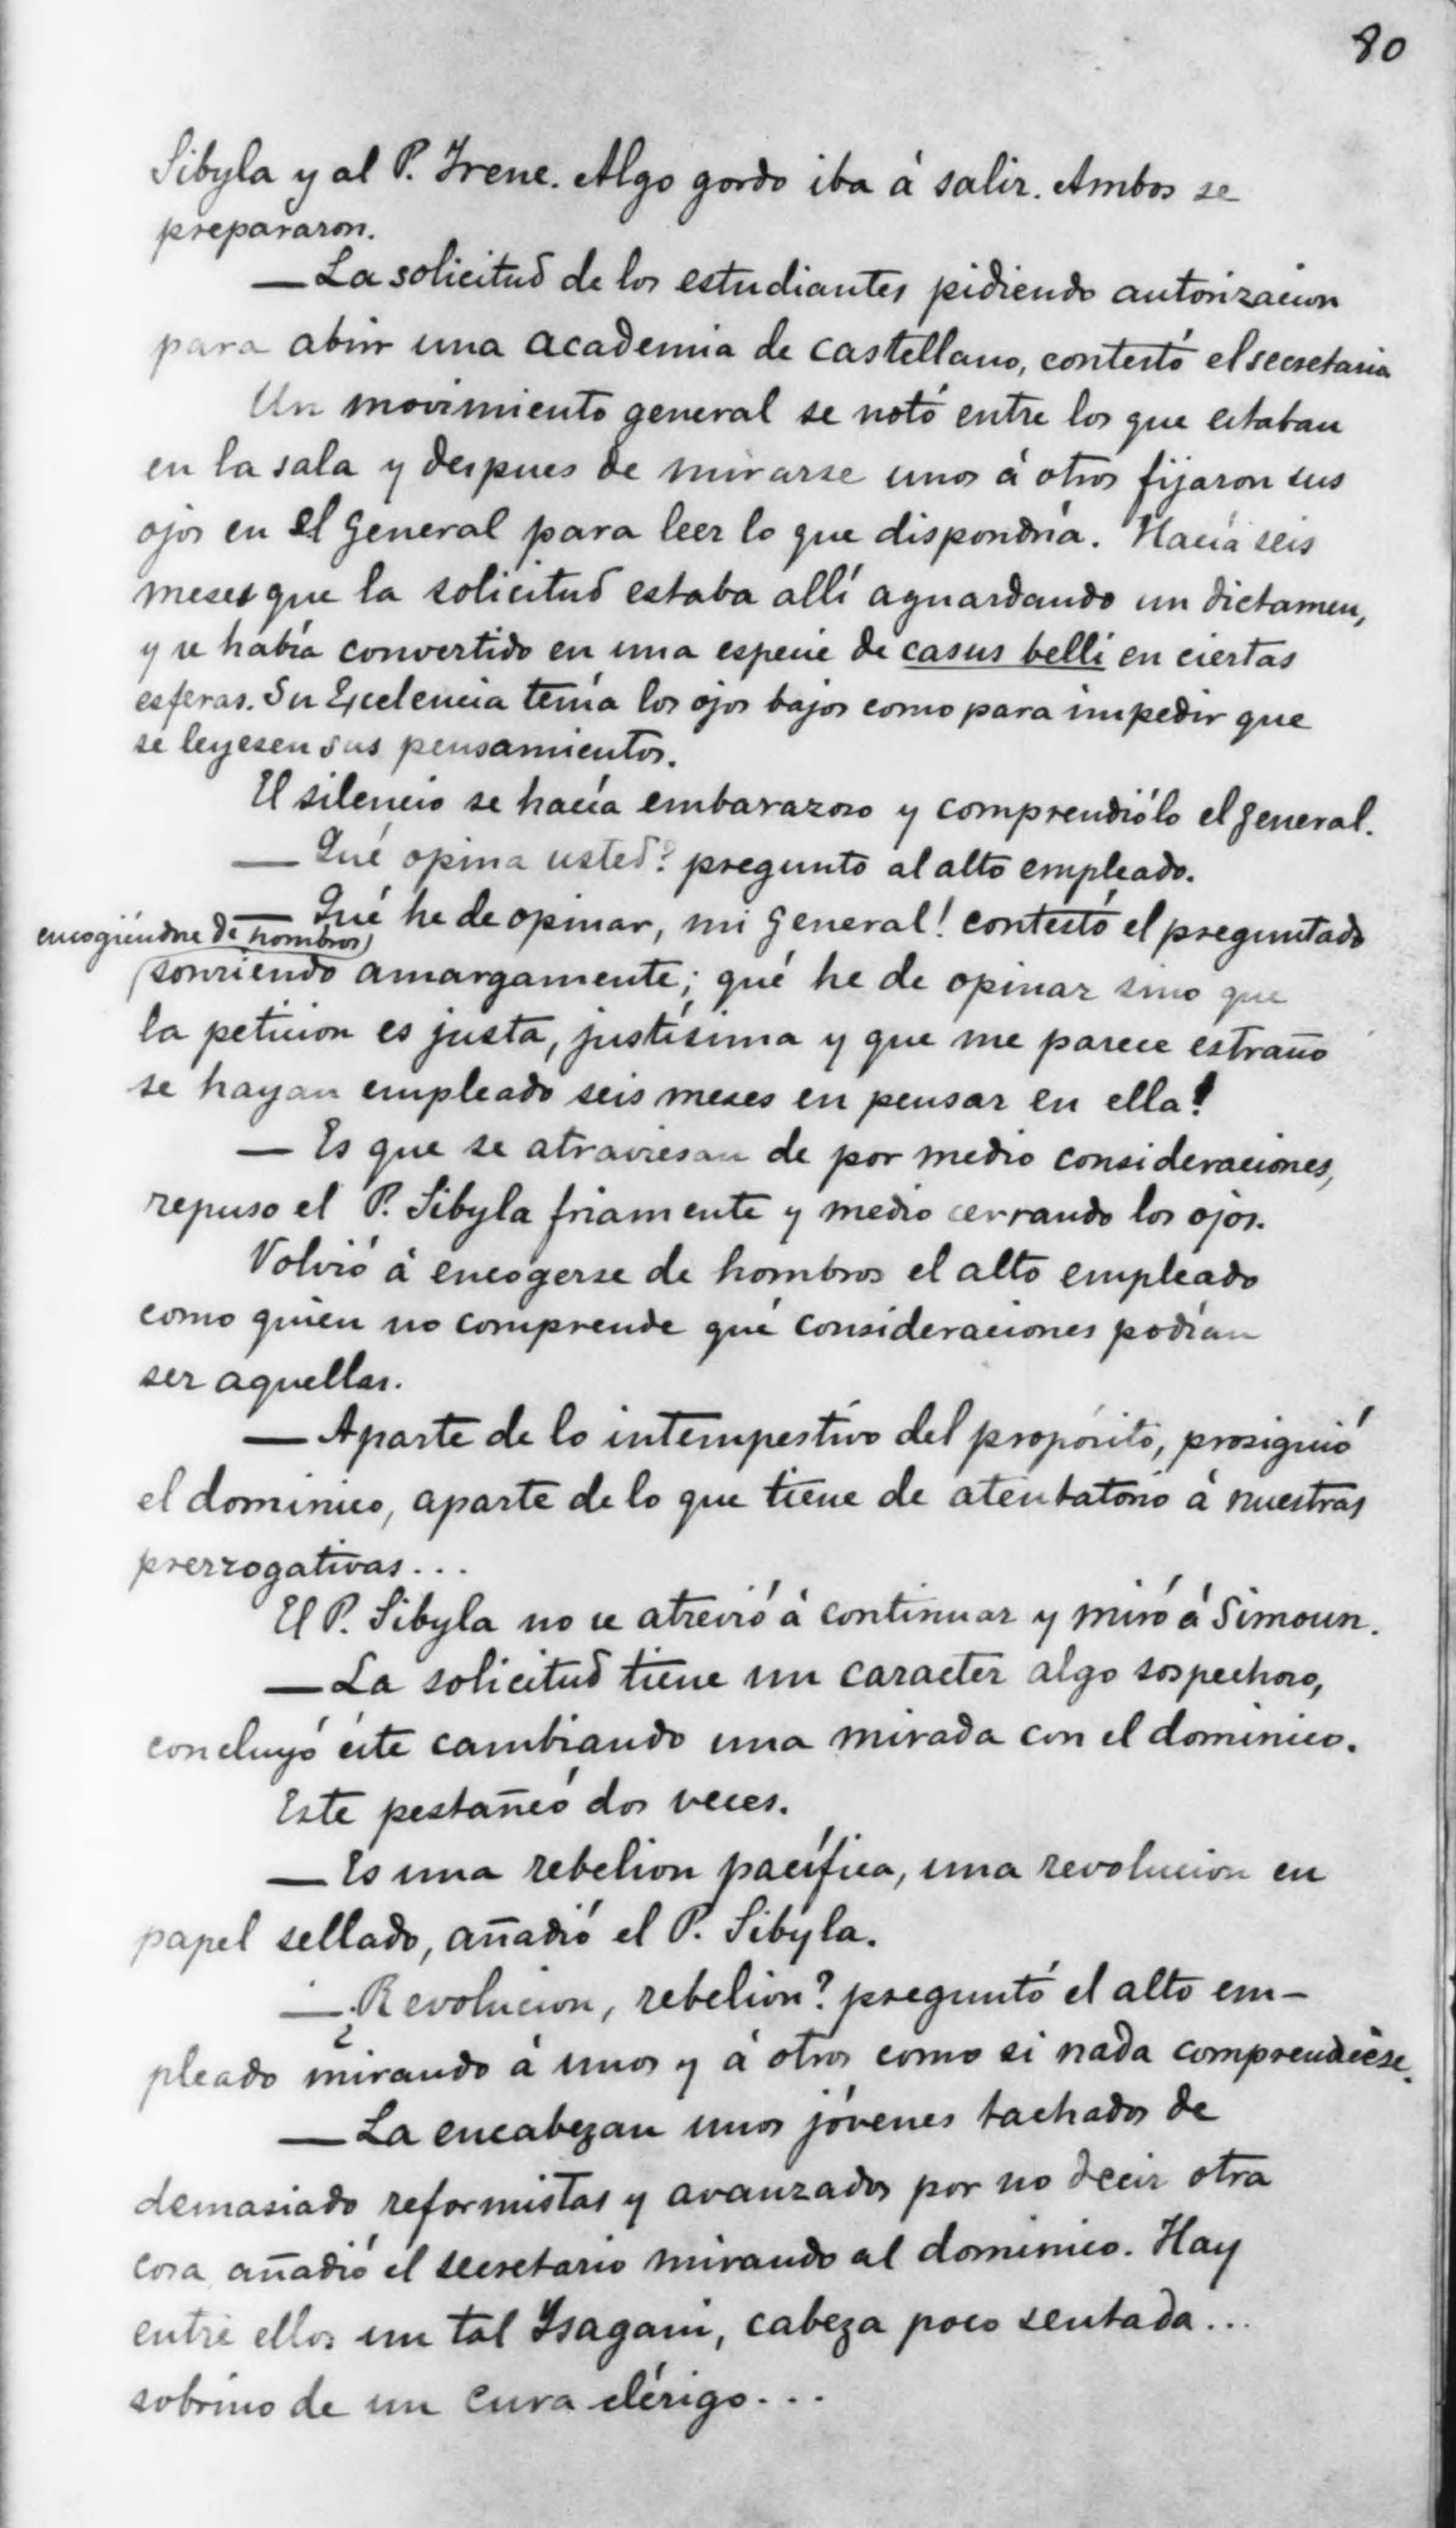 80
Sibyla y al P. Irene. Algo gordo iba á salir. Ambos se
prepararon.
— La solicitud de los estudiantes pidiendo autorizacion
para abrir una academia de castellano, contestó el secretario
Un movimiento general se notó entre los que estaban
en la sala y despues de mirarse unos á otros fijaron sus
ojos en el General para leer lo que dispondría. Hacía seis
meses que la solicitud estaba allí aguardando un dictamen,
y se había convertido en una especie de casus belli en ciertas
esferas. Su Excelencia tenía los ojos bajos como para impedir que
se leyesen sus pensamientos.
El silencio se hacía embarazoso y comprendiólo el general.
— Qué opina usted? preguntó al alto empleado.
— Qué he de opinar, mi General! contestó el preguntado
encogiéndose de hombros
sonriendo amargamente; qué he de opinar sino que
la peticion es justa, justísima y que me parece estraño
se hayan empleado seis meses en pensar en ella!
— Es que se atraviesan de por medio consideraciones,
repuso el P. Sibyla friamente y medio cerrando los ojos.
Volvió á encogerse de hombros el alto empleado
como quien no comprende qué consideraciones podían
ser aquellas.
— Aparte de lo intempestivo del propósito, prosiguió
el dominico, aparte de lo que tiene de atentatorio á nuestras
prerrogativas...
El P. Sibyla no se atrevió á continuar y miró á Simoun.
— La solicitud tiene un caracter algo sospechoso,
concluyó éste cambiando una mirada con el dominico.
Este pestañeó dos veces.
— Es una rebelion pacífica, una revolucion en
papel sellado, añadió el P. Sibyla.
— ¿Revolucion, rebelion? preguntó el alto em-
pleado mirando á unos y á otros como si nada comprendiese.
— La encabezan unos jóvenes tachados de
demasiado reformistas y avanzados por no decir otra
cosa añadió el secretario mirando al dominico. Hay
entre ellos un tal Isagani, cabeza poco sentada...
sobrino de un cura clérigo...